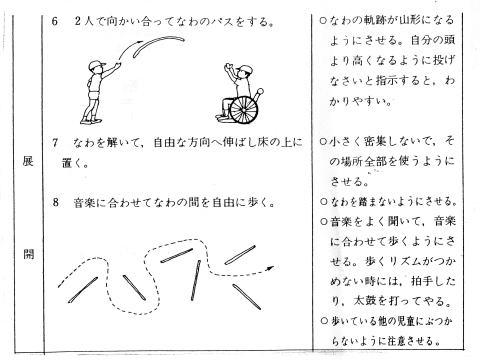 展開
6 2人で向かい合ってなわのパスをする。
7 なわを解いて,自由な方向へ伸ばし床の上に
置く。
8 音楽に合わせてなわの間を自由に歩く。
○なわの軌跡が山形になる
ようにさせる。自分の頭
より高くなるように投げ
なさいと指示すると,わ
かりやすい。
○小さく密集しないで,そ
の場所全部を使うように
させる。
○なわを踏まないようにさせる。
○音楽をよく聞いて,音楽
に合わせて歩くようにさ
せる。歩くリズムがつか
めない時には,拍手した
り,太鼓を打ってやる。
○歩いている他の児童にぶつか
らないように注意させる。